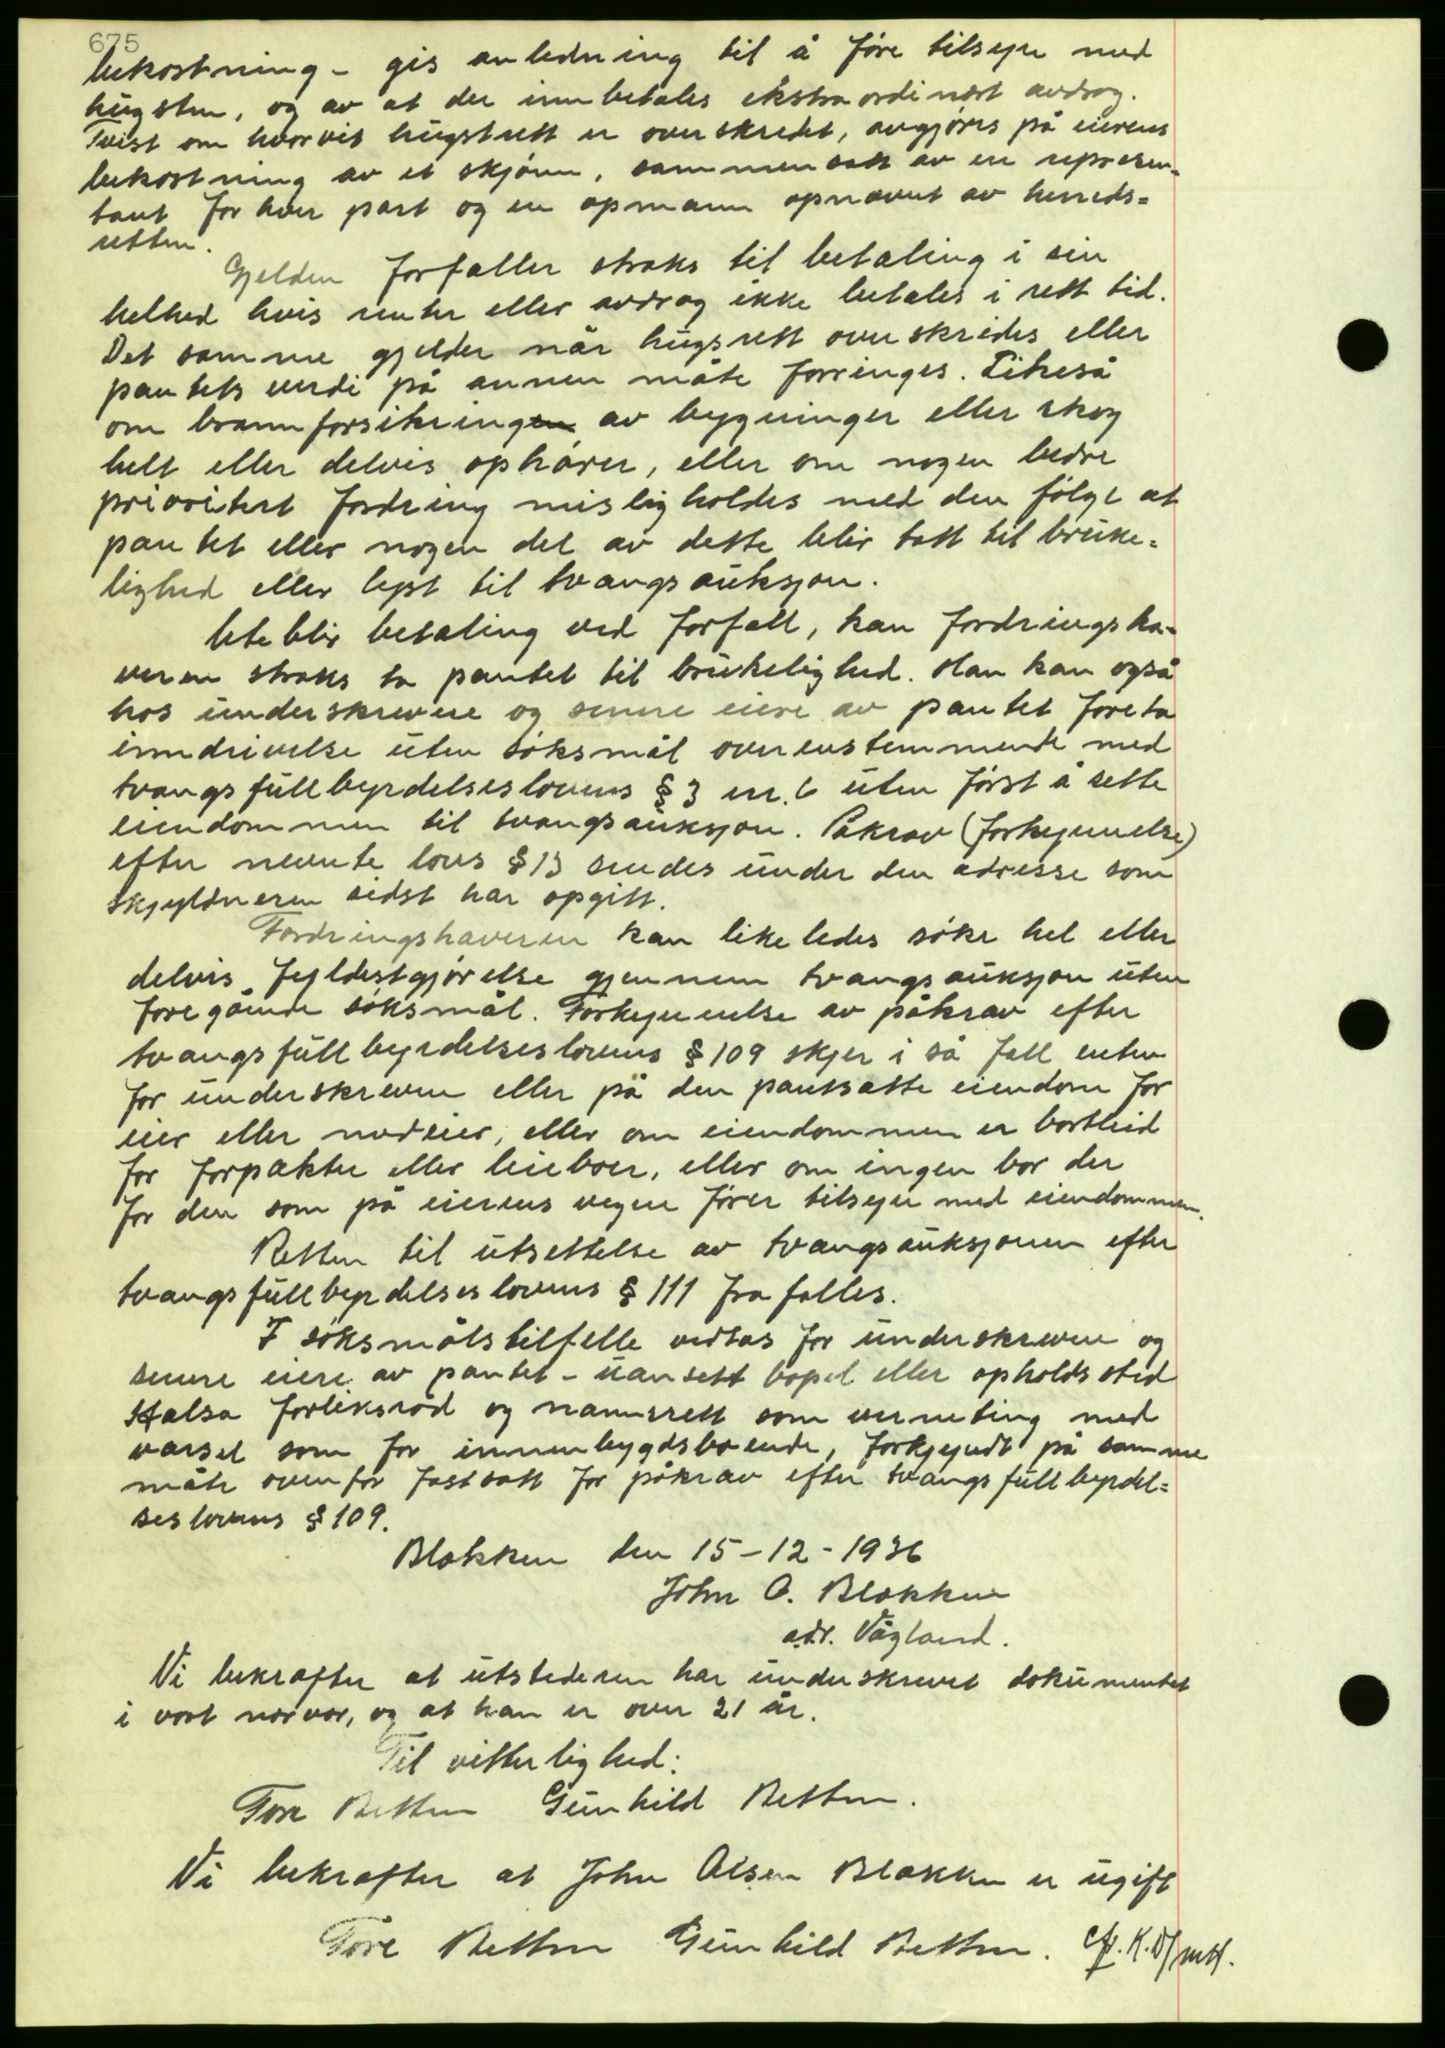 675
bekostning - gis anledning til å føre tilsyn med
hugsten, og av at der innbetales ekstraordinært avdrag.
Tvist om hvorvit hugstrett er overskredet, avgjøres på eierens
bekostning av et skjønn, sammensatt av en represen-
tant for hver part og en opmann opnævnt av herreds=
retten.
Gjelden forfaller straks til betaling i sin
helhed hvis renter eller avdrag ikke betales i rett tid.
Det samme gjelder når hugsrett overskrides eller
pantets verdi på annen måte forringes. Likeså
om brannforsikringen av bygninger eller skog
helt eller delvis ophører, eller om nogen bedre
prioritert fordring misligholdes med den følge at
pantet eller nogen del av dette blir tatt til bruke=
lighed eller lyst til tvangsauksjon.
Uteblir betaling ved forfall, kan fordringsha-
veren straks ta pantet til brukelighed. Han kan også
hos underskrevne og senere eiere av pantet foreta
inndrivelse uten søksmål overensstemmende med
tvangsfullbyrdelseslovens § 3 nr. 6 uten først å sette
eiendommen til tvangsauksjon. Påkrav (forkynnelse)
efter nevnte lovs § 13 sendes under den adresse som
skyldneren sidst har opgitt.
Fordringshaveren kan likeledes søke hel eller
delvis fyldestgjørelse gjennem tvangsauksjon uten
foregående søksmål. Forkynnelse av påkrav efter
tvangsfullbyrdelseslovens § 109 skjer i så fall enten
for underskrevne eller på den pantsatte eiendom for
eier eller medeier, eller om eiendommen er bortleid
for forpakter eller leieboer, eller om ingen bor der
for den som på eierens vegne fører tilsyn med eiendommen.
Retten til utsettelse av tvangsauksjonen efter
tvangsfullbyrdelseslovens § 111 frafalles.
I søksmålstilfelle vedtas for underskrevne og
senere eiere av pantet - uansett bopel eller opholdssted
Halsa forliksråd og namsrett som verneting med
varsel som for innenbygdsboende, forkynndt på samme
måte ovenfor fastsatt for påkrav efter tvangsfullbyrdel=
seslovens § 109.
Blakken den 15-12-1936
John O. Blakken
adr. Vågland.
Vi bekrefter at utstederen har underskrevet dokumentet
i vort nærvær, og at han er over 21 år.
Til vitterlighed:
Tore Betten Gunhild Betten.
Vi bekrefter at John Olsen Blakken er ugift
Tore Betten Gunhild Betten.